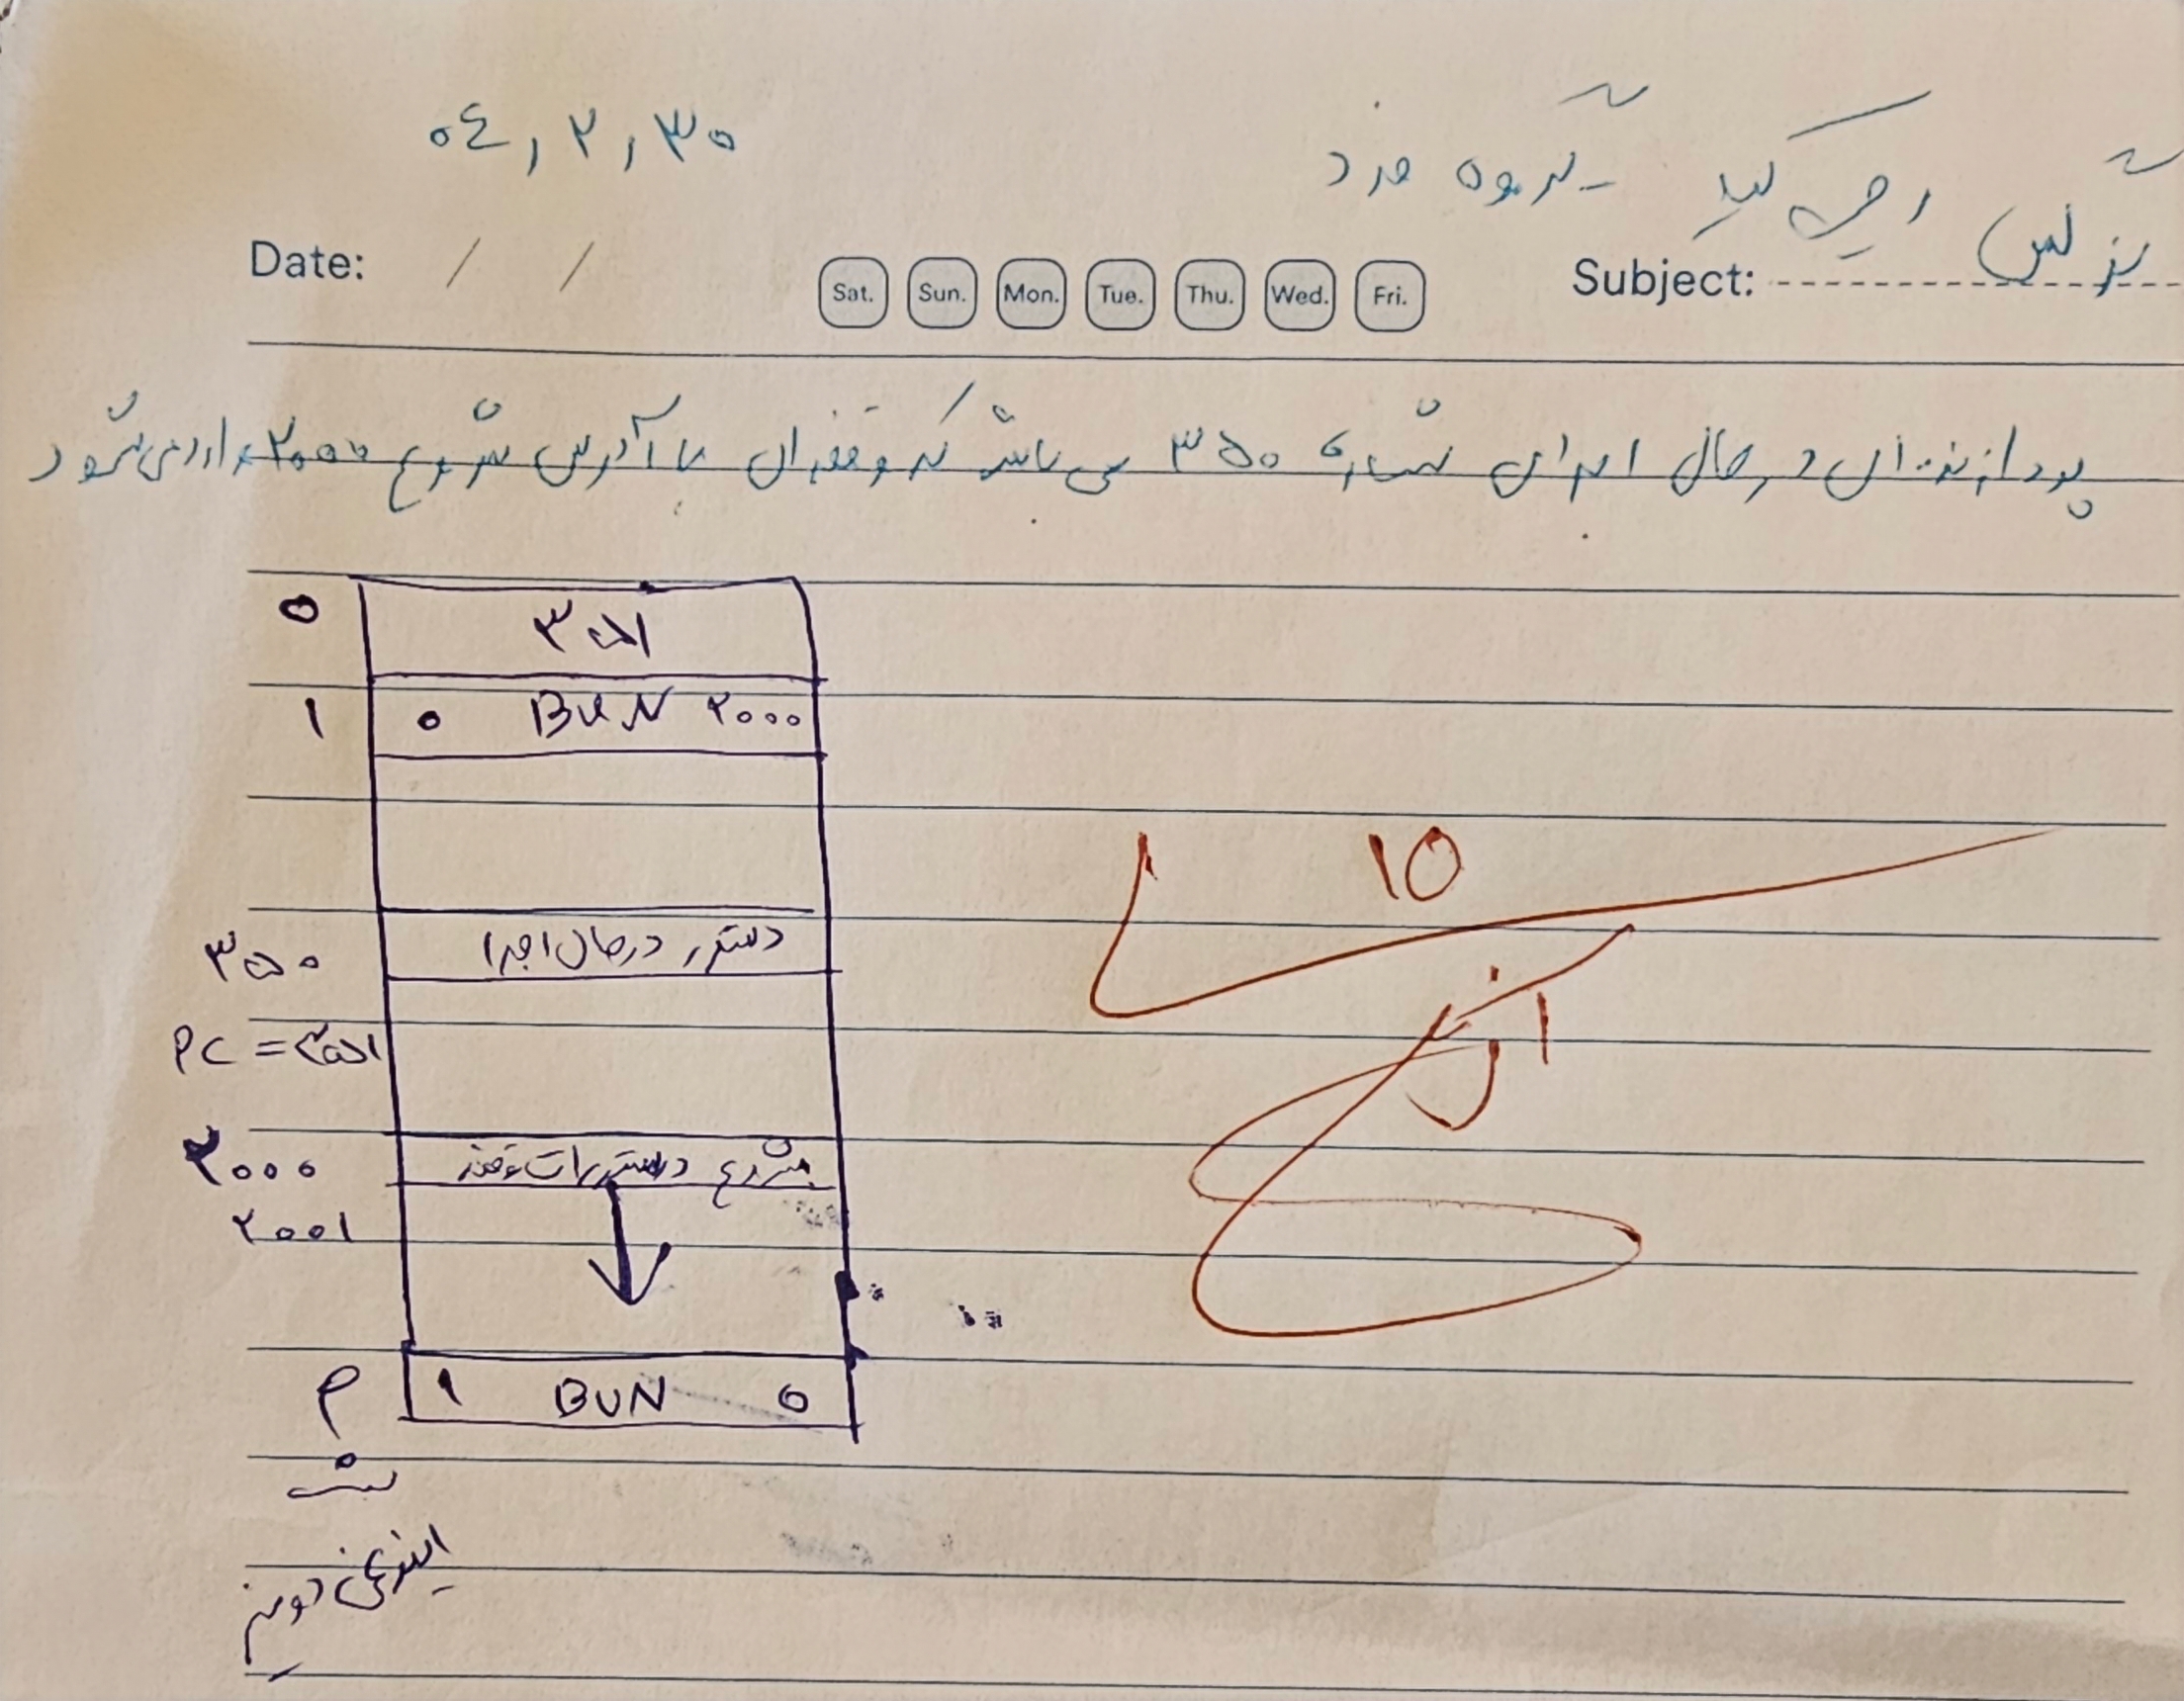 ۰۴, ۲, ۳۰
گروه فرد
Date: / /
Sat. Sun. Mon. Tue. Thu. Wed. Fri.
Subject:
در حال اجرای ۳۵۰ می باشد که وقفه ای با آدرس شروع ۲۰۰۰ وارد می شود
0 ۳۵۱
۱ ۰ BUN ۲۰۰۰
۳۵۰ دستور در حال اجرا
PC = ۳۵۱
۲۰۰۰ شروع دستورات وقفه
۲۰۰۱
۱ BUN ۰
10